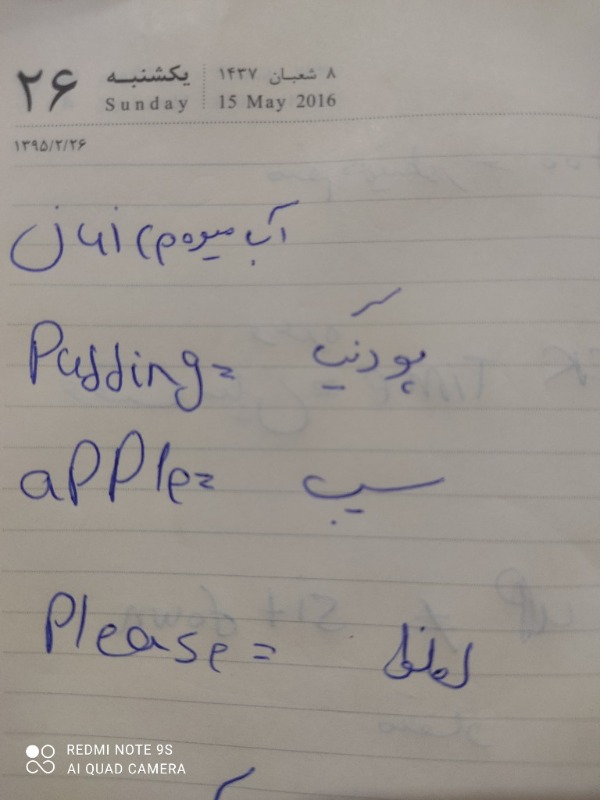 ۲۶ یکشنبه ۸ شعبان ۱۴۳۷
Sunday 15 May 2016
۱۳۹۵/۲/۲۶
آب میوه
Pudding= پودنیگ
apple= سیب
Please= لطفا
REDMI NOTE 9S
AI QUAD CAMERA